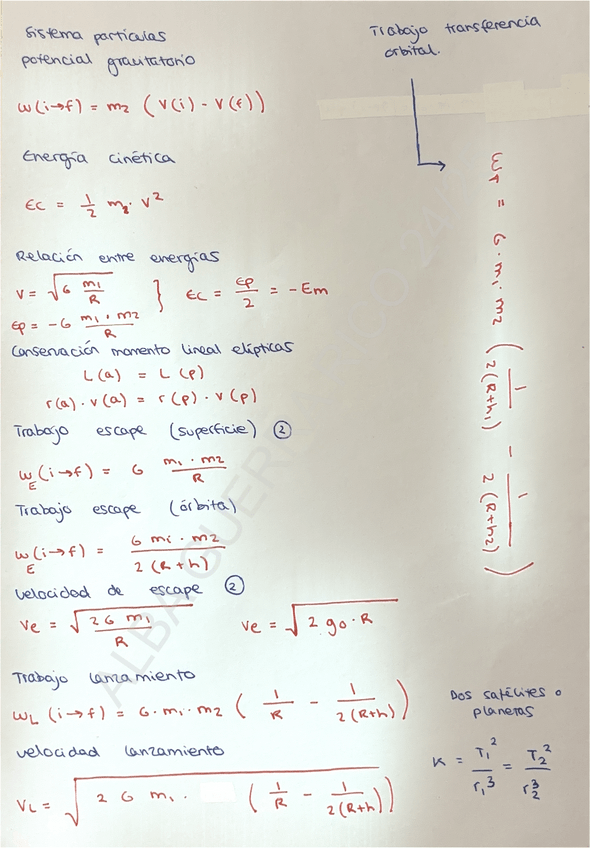 Sistema partículas
potencial gravitatorio
W(i→f) = m₂ (V(i) - V(f))
Energía cinética
Ec = 1/2 m₂ · V²
Relación entre energías
V = √(G m₁/R) } Ec = Ep/2 = -Em
Ep = -G m₁·m₂/R
Conservación momento lineal elípticas
L(a) = L(p)
r(a) · v(a) = r(p) · v(p)
Trabajo escape (superficie) ②
W_E(i→f) = G m₁·m₂/R
Trabajo escape (órbita)
W_E(i→f) = G m₁·m₂/2(R+h)
Velocidad de escape ②
Ve = √(2G m₁/R) Ve = √(2 g₀·R)
Trabajo lanzamiento
W_L (i→f) = G·m₁·m₂ (1/R - 1/2(R+h))
Velocidad lanzamiento
V_L = √(2 G m₁· (1/R - 1/2(R+h)))
Trabajo transferencia
orbital.
W_T = G·m₁·m₂ (1/2(R+h₁) - 1/2(R+h₂))
Dos satélites o
planetas
K = T₁²/r₁³ = T₂²/r₂³